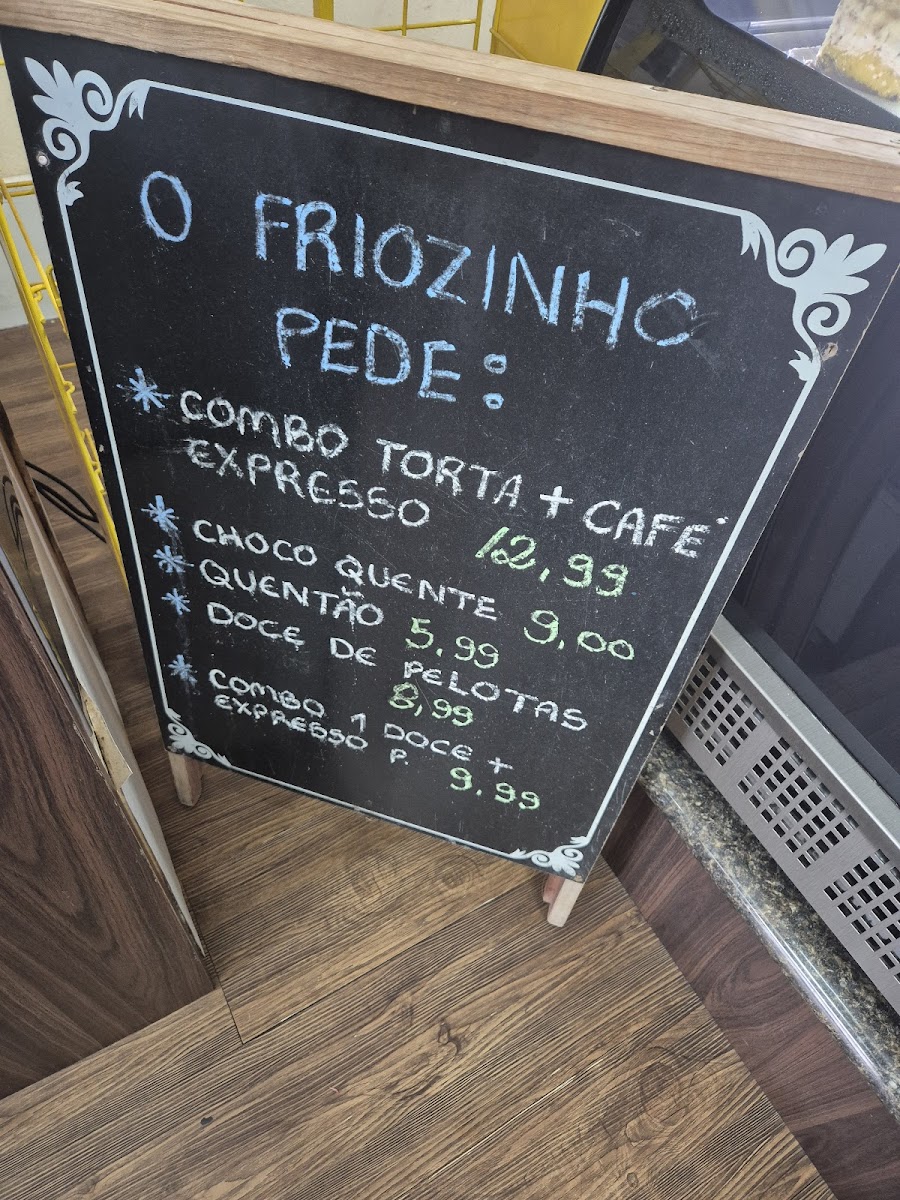 O FRIOZINHO
PEDE:
* COMBO TORTA + CAFÉ
EXPRESSO 12,99
* CHOCO QUENTE 9,00
* QUENTÃO 5,99
* DOCE DE PELOTAS
8,99
* COMBO 1 DOCE +
EXPRESSO P. 9,99